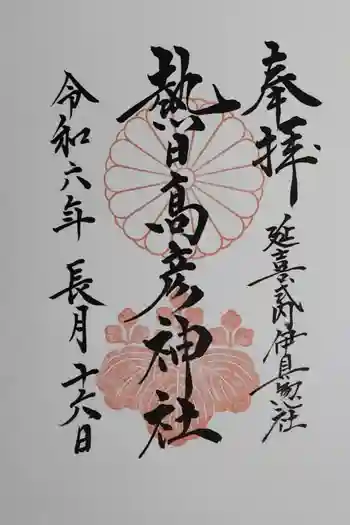 奉拝
延喜式内伊具郡総社
熱日高彦神社
令和六年 長月 十六日